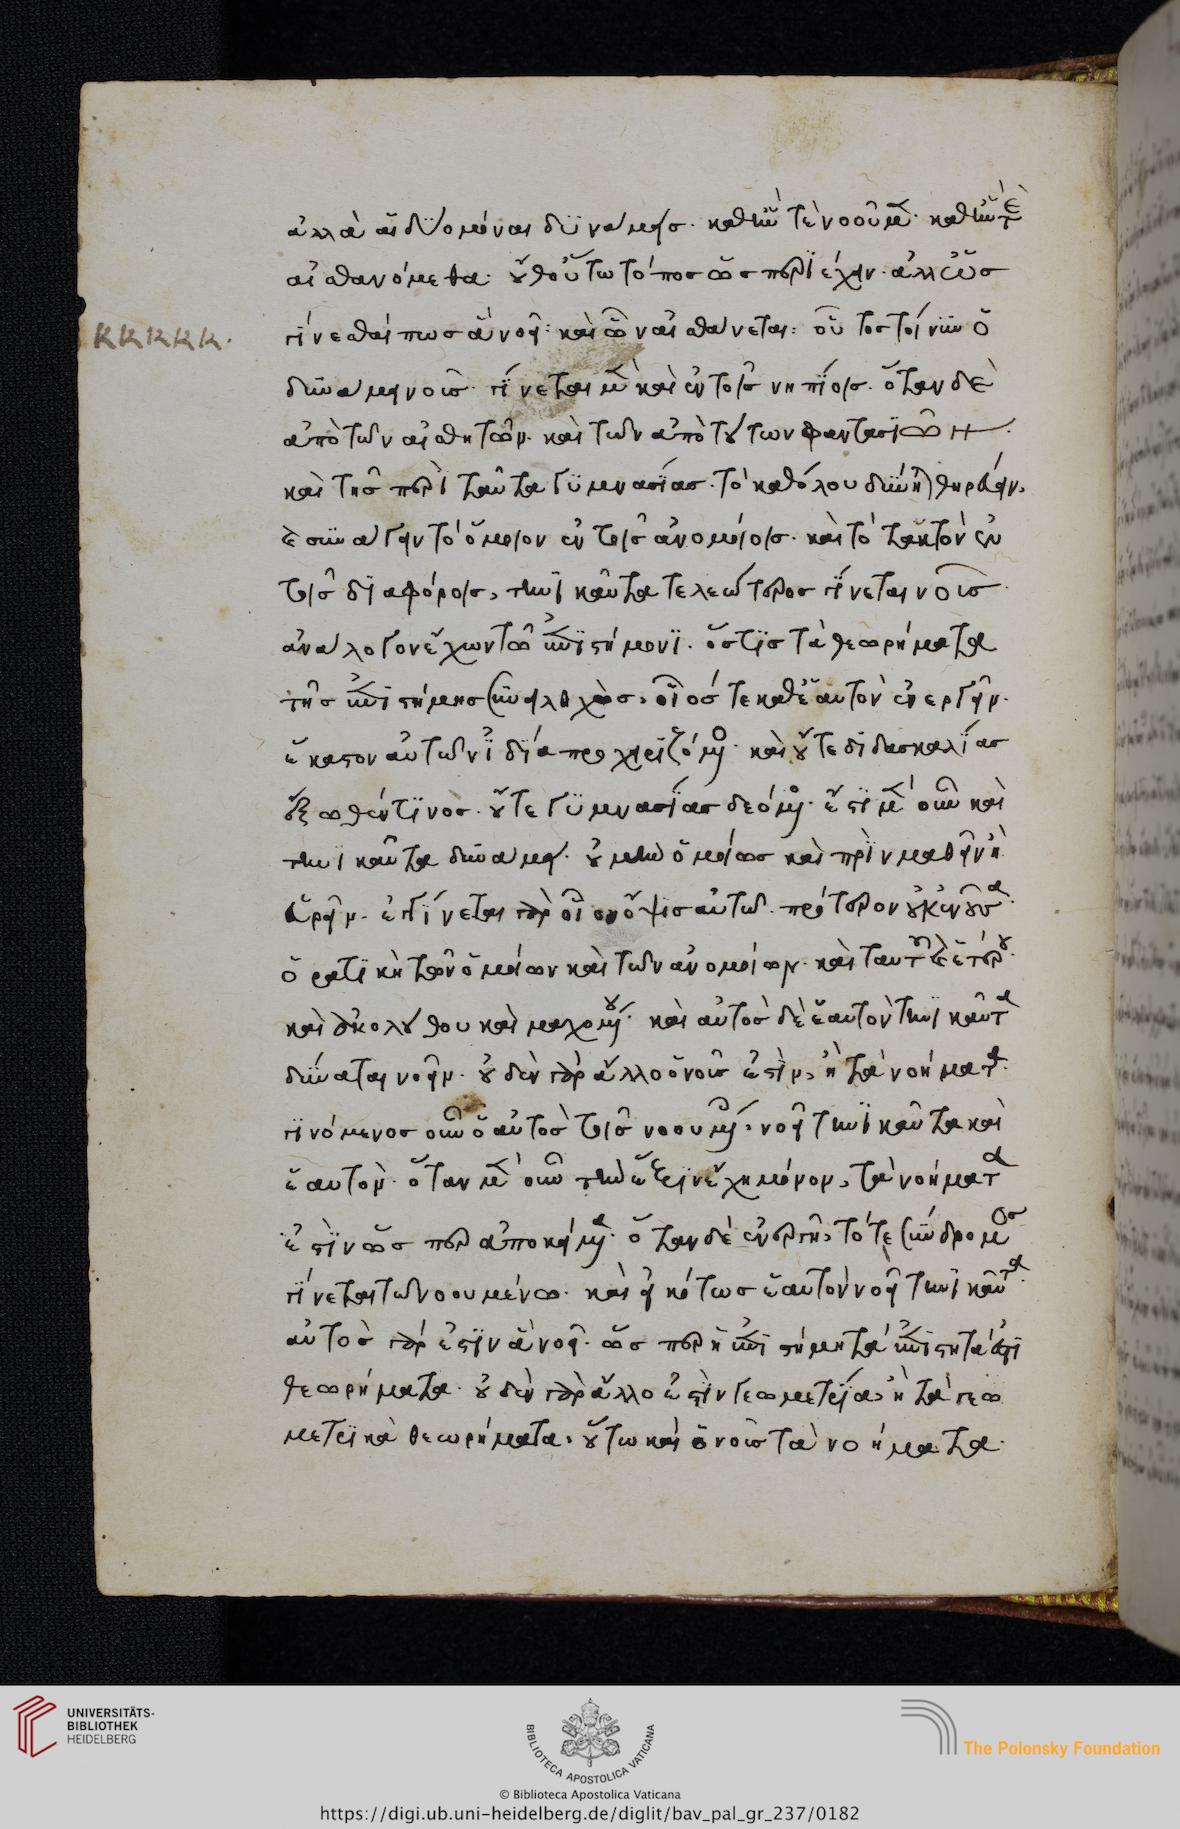 ἀλλὰ αἱ δυόμέναι δυνάμεις. καθ' ἣν τὲ νοοῦμεν. καθ' ἣν τὲ
αἰσθανόμεθα. οὔθ' οὕτω τόπος ὡς περιέχειν. ἀλλ' ὡς
γίνεσθαί πως ἃ νοεῖ: καὶ ὧν αἰσθάνεται: οὗτος τοίνυν ὁ
δυνάμει νοῦς. γίνεται μὲν καὶ ἐν τοῖς νηπίοις. ὅταν δὲ
ἀπὸ τῶν αἰσθητῶν. καὶ τῶν ἀπὸ τούτων φαντασιῶν
καὶ τῆς περὶ ταῦτα γυμνασίας. τὸ καθόλου δυνηθῇ θηρεύειν,
καὶ συνάγειν τὸ ὅμοιον ἐν τοῖς ἀνομοίοις. καὶ τὸ ταὐτὸν ἐν
τοῖς διαφόροις, τηνικαῦτα τελεώτερος γίνεται νοῦς
ἀνάλογον ἔχων τῶ ἐπιστήμονι. ὅστις τὰ θεωρήματα
τῆς ἐπιστήμης συνειληχὼς, οἷός τε καθ' ἑαυτὸν ἐνεργεῖν.
ἕκαστον αὐτῶν ἰδία προχειριζόμενος. καὶ οὔτε διδασκαλίας
ἔξωθέν τινος. οὔτε γυμνασίας δεόμενος. ἔστι μὲν οὖν καὶ
τηνικαῦτα δυνάμει. οὐ μὴν ὁμοίως καὶ πρὶν μαθεῖν ἢ
εὑρεῖν. ἐπιγίνεται γὰρ οἷον ὄψις αὐτῶ. πρότερον οὐκ ἐνοῦσα.
ὁρατικὴ τῶν ὁμοίων καὶ τῶν ἀνομοίων. καὶ ταυτοῦ καὶ ἑτέρου.
καὶ ἀκολούθου καὶ μαχομένου. καὶ αὐτὸς δὲ ἑαυτὸν τηνικαῦτα
δύναται νοεῖν. οὐδὲν γὰρ ἄλλο ὁ νοῦς ἐστὶν, ἢ τὰ νοήματα.
γινόμενος οὖν ὁ αὐτὸς τοῖς νοουμένοις, νοεῖ τηνικαῦτα καὶ
ἑαυτόν. ὅταν μὲν οὖν τὴν ἕξιν ἔχη μόνον, τὰ νοήματα
ἐστὶν ὥσπερ ἀποκείμενα. ὅταν δὲ ἐνεργῆ, τότε σύνδρομος
γίνεται τῶ νοουμένω. καὶ εἰκότως ἑαυτὸν νοεῖ τηνικαῦτα.
αὐτὸς γάρ ἐστιν ἃ νοεῖ. ὥσπερ ἡ ἐπιστήμη τὰ ἐπιστητά ἐστι
θεωρήματα. οὐδὲν γὰρ ἄλλο ἐστὶν γεωμετρία, ἢ τὰ γεω
μετρικὰ θεωρήματα, οὕτω καὶ ὁ νοῦς τὰ νοήματα.
UNIVERSITÄTS-
BIBLIOTHEK
HEIDELBERG
BIBLIOTECA APOSTOLICA VATICANA
The Polonsky Foundation
© Biblioteca Apostolica Vaticana
https://digi.ub.uni-heidelberg.de/diglit/bav_pal_gr_237/0182